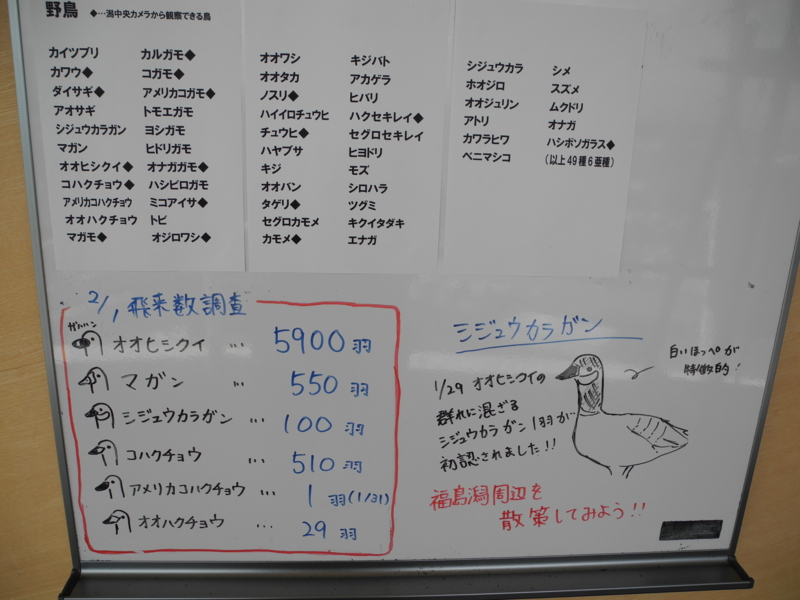 野鳥 ◆…潟中央カメラから観察できる鳥
カイツブリ
カワウ◆
ダイサギ◆
アオサギ
シジュウカラガン
マガン
オオヒシクイ◆
コハクチョウ◆
アメリカコハクチョウ
オオハクチョウ
マガモ◆
カルガモ◆
コガモ◆
アメリカコガモ◆
トモエガモ
ヨシガモ
ヒドリガモ
オナガガモ◆
ハシビロガモ
ミコアイサ◆
トビ
オジロワシ◆
オオワシ
オオタカ
ノスリ◆
ハイイロチュウヒ
チュウヒ◆
ハヤブサ
キジ
オオバン
タゲリ◆
セグロカモメ
カモメ◆
キジバト
アカゲラ
ヒバリ
ハクセキレイ◆
セグロセキレイ
ヒヨドリ
モズ
シロハラ
ツグミ
キクイタダキ
エナガ
シジュウカラ
ホオジロ
オオジュリン
アトリ
カワラヒワ
ベニマシコ
シメ
スズメ
ムクドリ
オナガ
ハシボソガラス◆
(以上49種6亜種)
2/1, 飛来数調査
オオヒシクイ … 5900羽
マガン 〃 550羽
シジュウカラガン … 100羽
コハクチョウ … 510羽
アメリカコハクチョウ … 1羽(1/31)
オオハクチョウ … 29羽
シジュウカラガン
1/29 オオヒシクイの
群れに混ざる
シジュウカラガン1羽が
初認されました!!
白いほっぺが
特徴的!
福島潟周辺を
散策してみよう!!